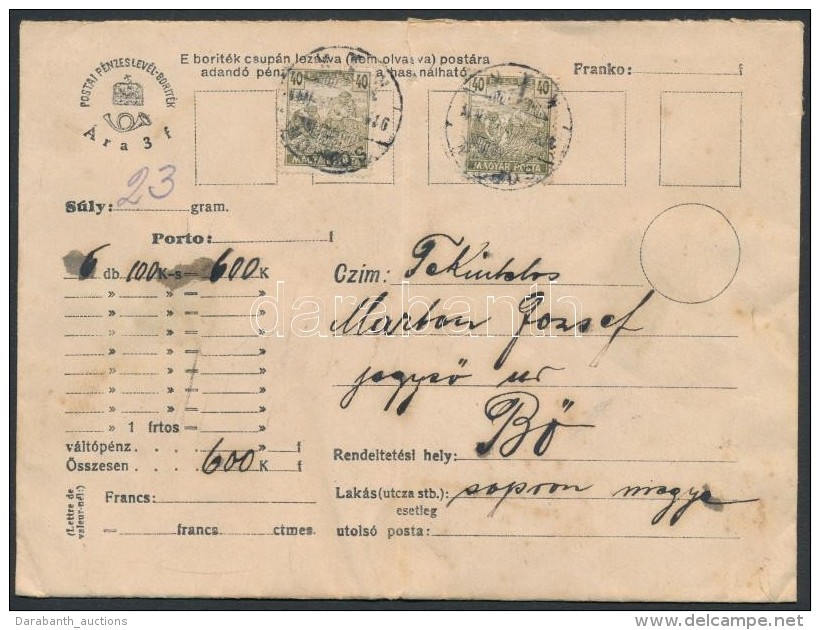 POSTAI PÉNZESLEVÉL-BORITÉK
Ára 3 f
E boriték csupán lezárva (nem olvasva) postára
adandó a használható
Franko: f
40 40
MAGYAR POSTA
40 40
MAGYAR POSTA
Súly: 23 gram.
Porto: f
6 db 100 K-s — 600 K
» » — »
» » — »
» » — »
» » — »
» » — »
» » — »
» » — »
» 1 frtos — »
váltópénz » f
Összesen 600 K f
Francs:
— francs ctmes
(Lettre de valeur-nél:)
Czim: Tekintetes
Marton József
jegyző ur
Rendeltetési hely: Bő
Lakás (utcza stb.): sopron megye
esetleg
utolsó posta:
darabanth
Darabanth_auctions
delcampe.net